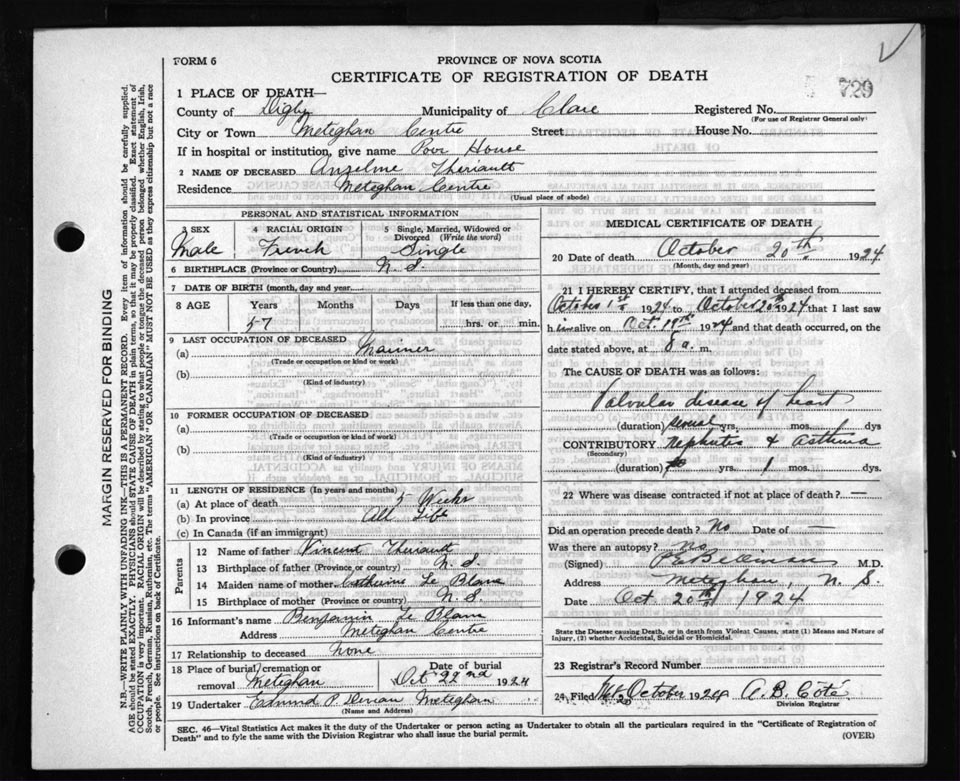 FORM 6
PROVINCE OF NOVA SCOTIA
CERTIFICATE OF REGISTRATION OF DEATH
729
1 PLACE OF DEATH—
County of Digby Municipality of Clare Registered No.
(For use of Registrar General only)
City or Town Meteghan Centre Street House No.
If in hospital or institution, give name Poor House
2 NAME OF DECEASED Anzelme Theriault
Residence Meteghan Centre
(Usual place of abode)
PERSONAL AND STATISTICAL INFORMATION
3 SEX 4 RACIAL ORIGIN 5 Single, Married, Widowed or Divorced (Write the word)
Male French Single
6 BIRTHPLACE (Province or Country) N. S.
7 DATE OF BIRTH (month, day and year)
8 AGE Years Months Days If less than one day,
57 hrs. or min.
9 LAST OCCUPATION OF DECEASED
(a) Mariner
(Trade or occupation or kind or work)
(b)
(Kind of industry)
10 FORMER OCCUPATION OF DECEASED
(a)
(Trade or occupation or kind of work)
(b)
(Kind of industry)
11 LENGTH OF RESIDENCE (In years and months)
(a) At place of death 5 Weeks
(b) In province All Life
(c) In Canada (if an immigrant)
Parents
12 Name of father Vincent Theriault
13 Birthplace of father (Province or country) N. S.
14 Maiden name of mother Catherine Le Blanc
15 Birthplace of mother (Province or country) N. S.
16 Informant's name Benjamin Le Blanc
Address Meteghan Centre
17 Relationship to deceased none
18 Place of burial, cremation or removal Meteghan
Date of burial Oct 22nd 1924
19 Undertaker Edmund P. Meteghan
(Name and Address)
MEDICAL CERTIFICATE OF DEATH
20 Date of death October 20th 1924
(Month, day and year)
21 I HEREBY CERTIFY, that I attended deceased from
October 1st 1924 to October 20th 1924 that I last saw
h im alive on Oct. 19th 1924 and that death occurred, on the
date stated above, at 8 a. m.
The CAUSE OF DEATH was as follows:
Valvular disease of heart
(duration) several yrs. mos. dys
CONTRIBUTORY Nephritis & Asthma
(Secondary)
(duration) yrs. 1 mos. dys.
22 Where was disease contracted if not at place of death? —
Did an operation precede death? No Date of —
Was there an autopsy? No
(Signed) M.D.
Address Meteghan, N. S.
Date Oct 20th 1924
State the Disease causing Death, or in death from Violent Causes, state (1) Means and Nature of
Injury, (2) whether Accidental, Suicidal or Homicidal.
23 Registrar's Record Number
24 Filed October 1924 A. B. Coté
Division Registrar
SEC. 46—Vital Statistics Act makes it the duty of the Undertaker or person acting as Undertaker to obtain all the particulars required in the "Certificate of Registration of
Death" and to fyle the same with the Division Registrar who shall issue the burial permit. (OVER)
MARGIN RESERVED FOR BINDING
N.B.—WRITE PLAINLY WITH UNFADING INK—THIS IS A PERMANENT RECORD. Every item of information should be carefully supplied.
AGE should be stated EXACTLY. PHYSICIANS should STATE CAUSE OF DEATH in plain terms, so that it may be properly classified. Exact statement of
OCCUPATION is very important. RACIAL ORIGIN will be described by stating to what people or tongue the deceased person belonged whether English, Irish,
Scotch, French, German, Russian, Ruthenian, etc. The terms "AMERICAN" OR "CANADIAN" MUST NOT BE USED as they express citizenship but not a race
or people. See instructions on back of Certificate.